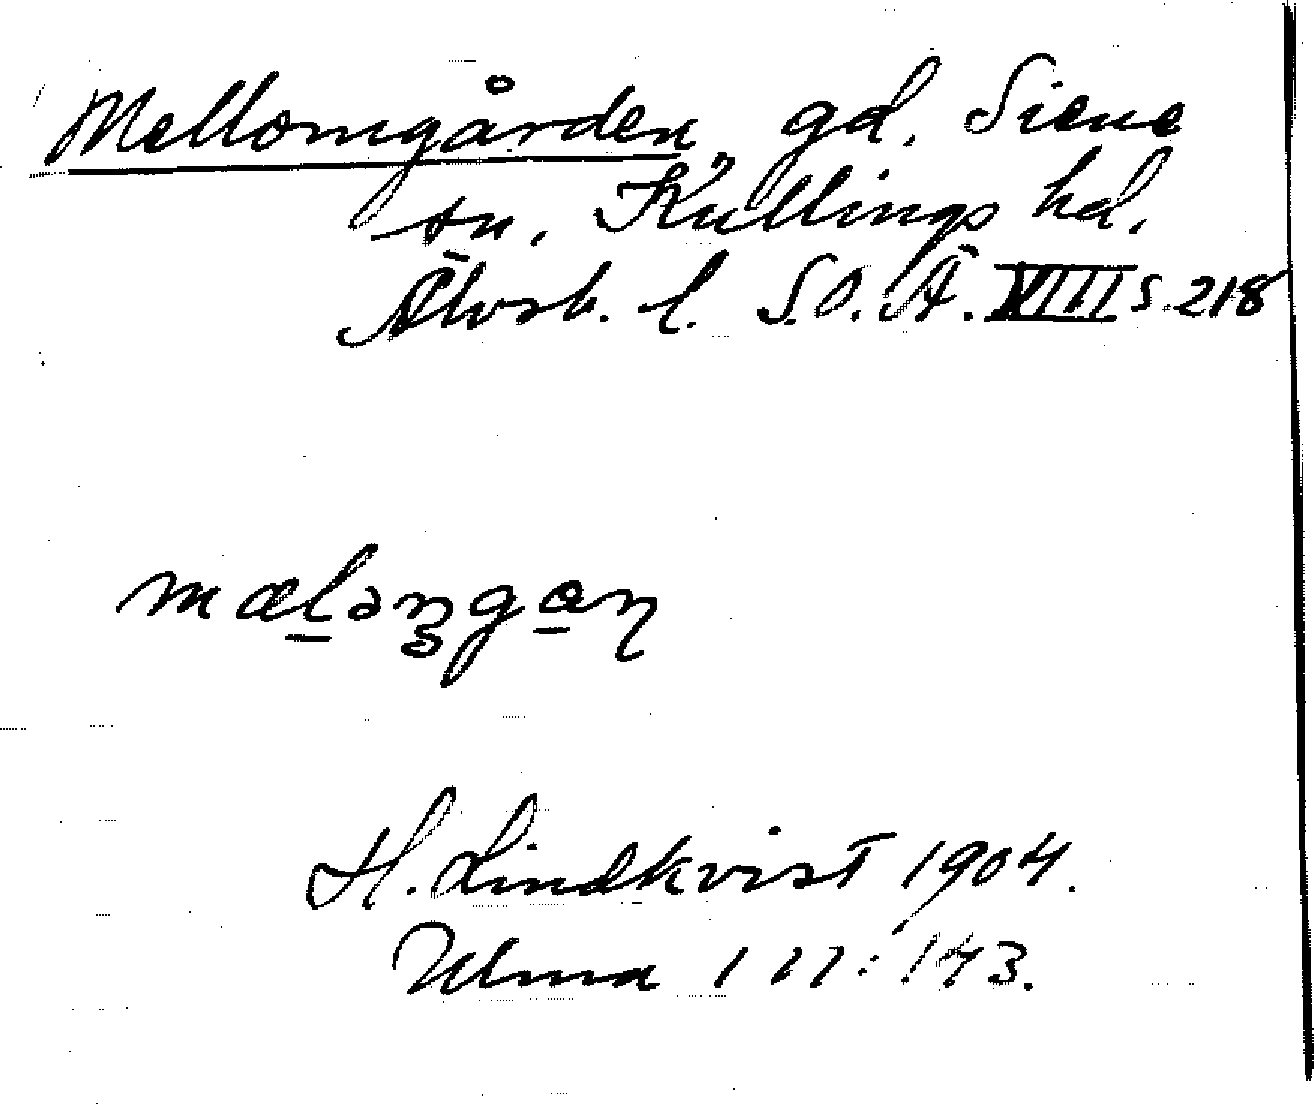 Mellomgården gd. Siene
sn. Kullings hd.
Älvsb. l. S.O.Ä. VIII s. 218
mælɔŋgaɳ
H. Lindkvist 1904.
Ulma 111:143.